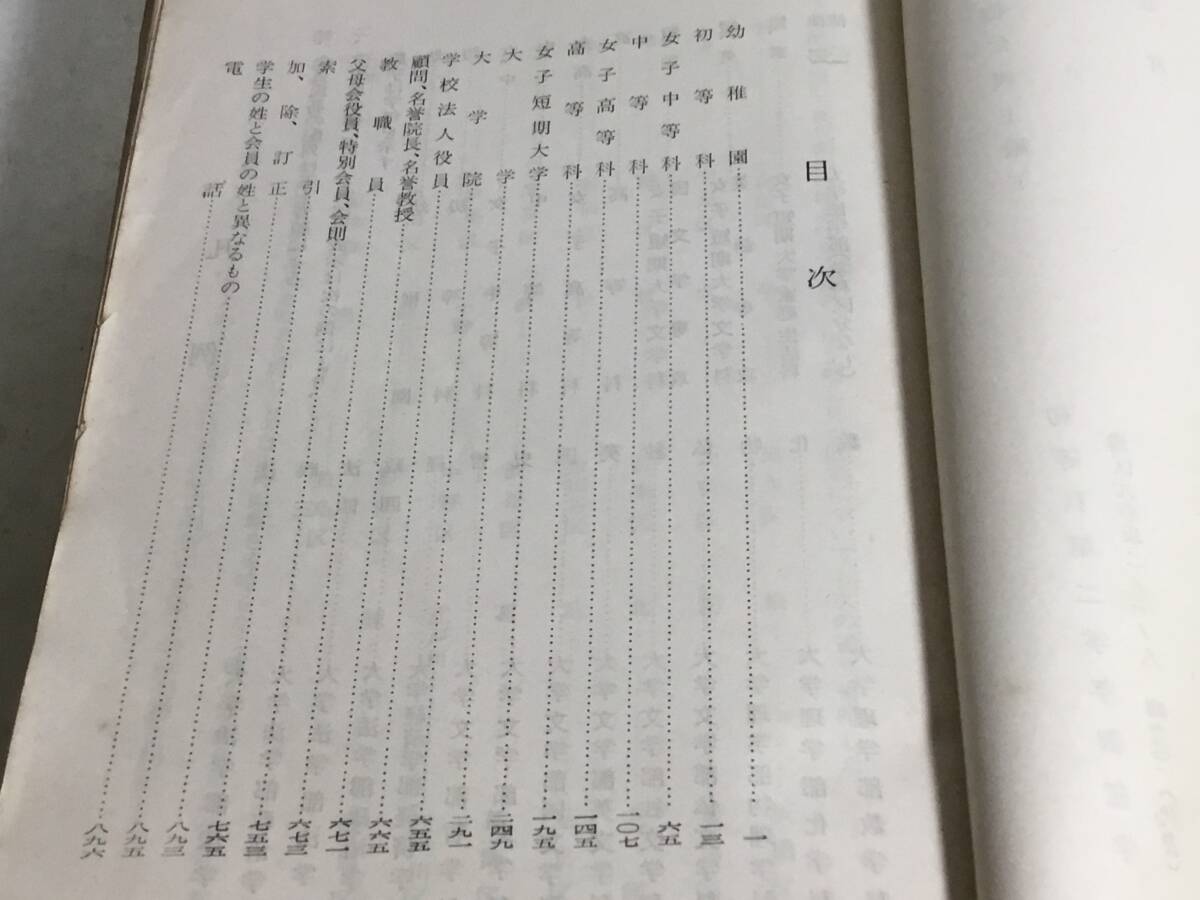 目次
幼稚園……一
初等科……一三
女子中等科……六五
中等科……一〇七
女子高等科……一四五
高等科……一九五
女子短期大学……二四九
大学……二九一
大学院……六五五
学校法人役員……六六五
顧問、名誉院長、名誉教授……六七一
教職員……六七三
父母会役員、特別会員、会則……七五三
索引……七六五
加、除、訂正……八九三
学生の姓と会員の姓と異なるもの……八九五
電話……八九六